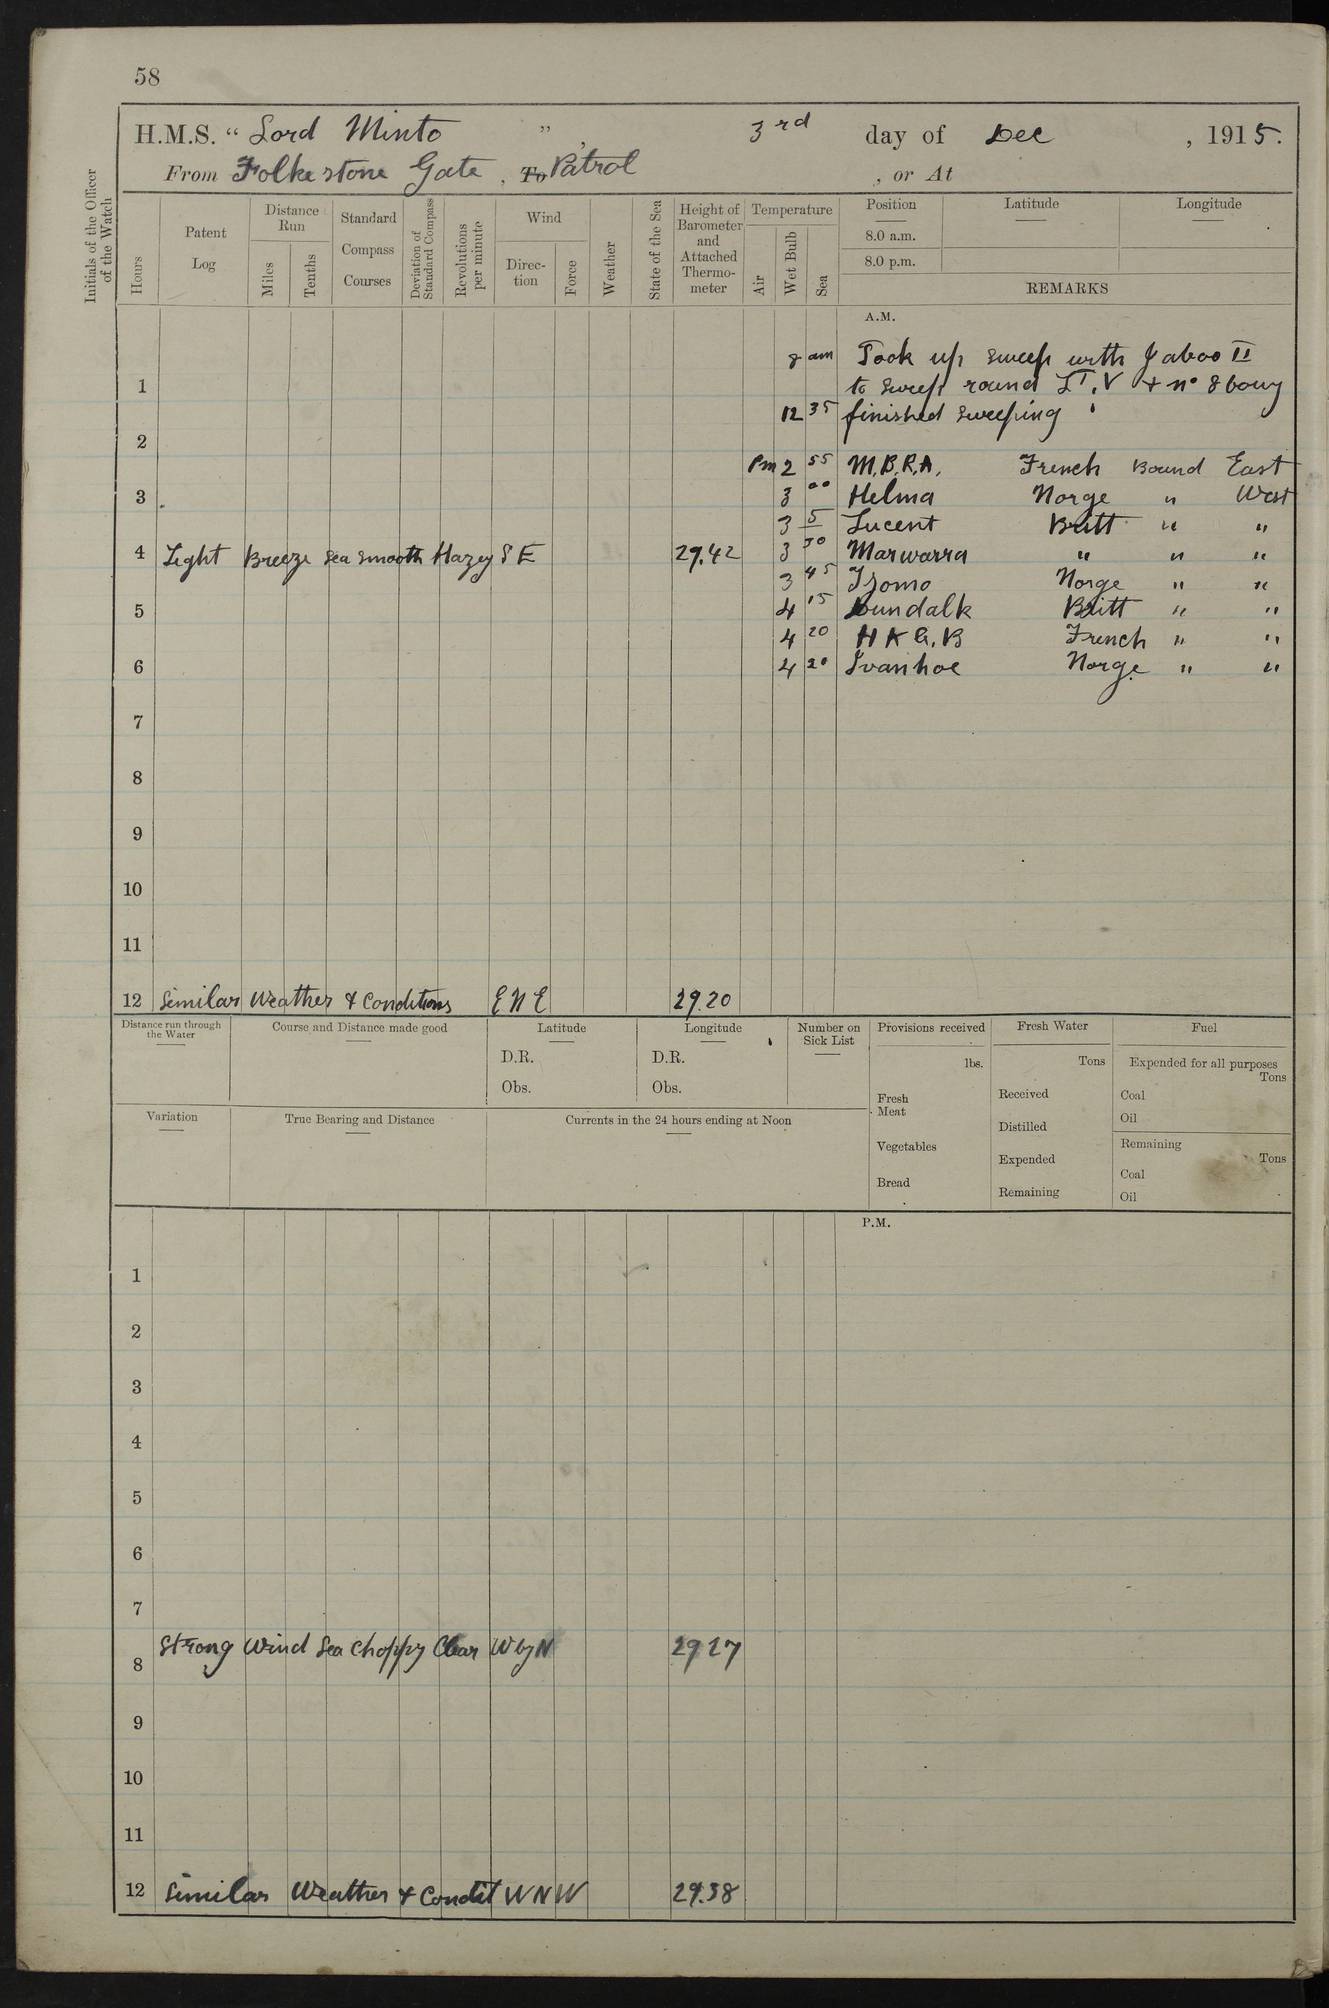 58
H.M.S. “ Lord Minto ”, 3rd day of Dec , 1915.
From Folkestone Gate , To Patrol , or At
Initials of the Officer of the Watch
Hours
Patent Log
Distance Run
Miles
Tenths
Standard Compass Courses
Deviation of Standard Compass
Revolutions per minute
Wind
Direction
Force
Weather
State of the Sea
Height of Barometer and Attached Thermometer
Temperature
Air
Wet Bulb
Sea
Position
8.0 a.m.
8.0 p.m.
Latitude
Longitude
REMARKS
A.M.
8 am Took up sweep with Jaboo II
1 to sweep round LT. V + no 8 bouy
12 35 finished sweeping
2
Pm 2 55 M.B.R.A. French Bound East
3 3 00 Helma Norge " West
3 5 Lucent Britt " "
4 Light Breeze Sea Smooth Hazey S E 29.42 3 30 Marwarra " " "
3 45 Tromo Norge " "
5 4 15 Dundalk Britt " "
4 20 H K G. B French " "
6 4 20 Ivanhoe Norge " "
7
8
9
10
11
12 Similar Weather & Conditions E N E 29.20
Distance run through the Water
Course and Distance made good
Latitude
D.R.
Obs.
Longitude
D.R.
Obs.
Number on Sick List
Provisions received
lbs.
Fresh Meat
Vegetables
Bread
Fresh Water
Tons
Received
Distilled
Expended
Remaining
Fuel
Expended for all purposes
Tons
Coal
Oil
Remaining
Tons
Coal
Oil
Variation
True Bearing and Distance
Currents in the 24 hours ending at Noon
P.M.
1
2
3
4
5
6
7
8 Strong Wind Sea Choppy Clear W by N 29 27
9
10
11
12 Similar Weather & Condit W N W 29.38